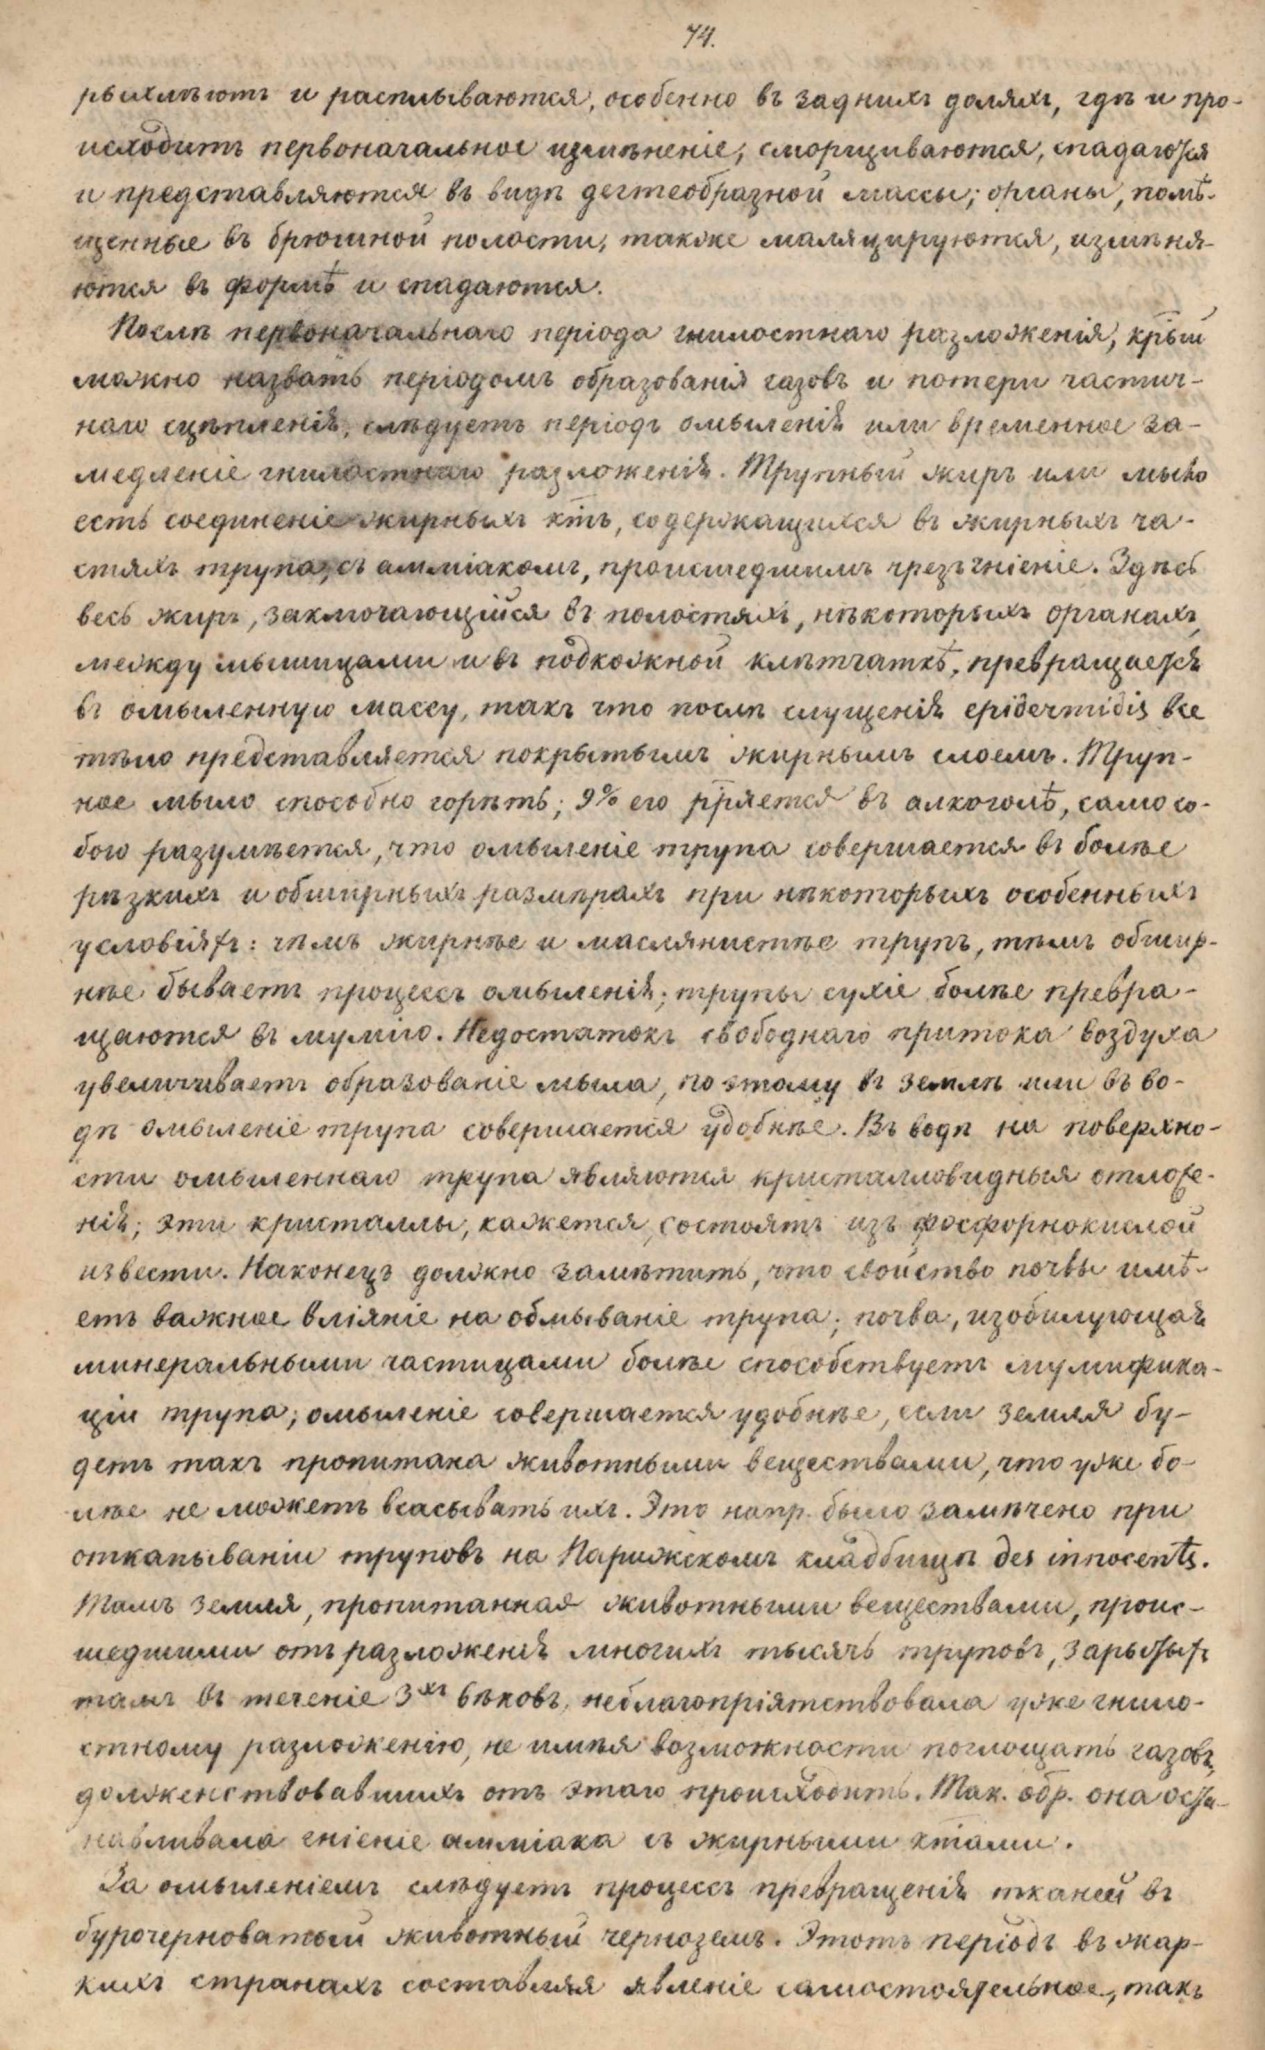 74.
рыхлѣютъ и расплываются, особенно въ заднихъ доляхъ, гдѣ и про-
исходитъ первоначальное измѣненіе, сморщиваются, спадаются
и представляются въ видѣ дегтеобразной массы; органы, помѣ-
щенные въ брюшной полости, также маляцируются, измѣня-
ются въ формѣ и спадаются.
Послѣ первоначальнаго періода гнилостнаго разложенія, крый
можно назвать періодомъ образованія газовъ и потери частич-
наго сцѣпленія, слѣдуетъ періодъ омыленія или временное за-
медленіе гнилостнаго разложенія. Трупный жиръ или мыло
есть соединеніе жирныхъ ктъ, содержащихся въ жирныхъ ча-
стяхъ трупа, съ амміакомъ, происшедшимъ чрезъ гніеніе. Здѣсь
весь жиръ, заключающійся въ полостяхъ, нѣкоторыхъ органахъ,
между мышцами и въ подкожной клѣтчаткѣ, превращается
въ омыленную массу, такъ что послѣ слущенія epidermidis все
тѣло представляется покрытымъ жирнымъ слоемъ. Труп-
ное мыло способно горѣть; 9% его рряется въ алкоголѣ, само со-
бою разумѣется, что омыленіе трупа совершается въ болѣе
рѣзкихъ и обширныхъ размѣрахъ при нѣкоторыхъ особенныхъ
условіяхъ: чѣмъ жирнѣе и маслянистѣе трупъ, тѣмъ обшир-
нѣе бываетъ процессъ омыленія; трупы сухіе болѣе превра-
щаются въ мумію. Недостатокъ свободнаго притока воздуха
увеличиваетъ образованіе мыла, по этому въ землѣ или въ во-
дѣ омыленіе трупа совершается удобнѣе. Въ водѣ на поверхно-
сти омыленнаго трупа являются кристалловидныя отложе-
нія; эти кристаллы, кажется, состоятъ изъ фосфорнокислой
извести. Наконецъ должно замѣтить, что свойство почвы имѣ-
етъ важное вліяніе на обмываніе трупа; почва, изобилующая
минеральными частицами болѣе способствуетъ мумифика-
ціи трупа; омыленіе совершается удобнѣе, если земля бу-
детъ такъ пропитана животными веществами, что уже бо-
лѣе не можетъ всасывать ихъ. Это напр. было замѣчено при
откапываніи труповъ на Парижскомъ кладбищѣ des innocents.
Тамъ земля, пропитанная животными веществами, проис-
шедшими отъ разложенія многихъ тысячъ труповъ, зарытыхъ
тамъ въ теченіе 3хъ вѣковъ, неблагопріятствовала уже гнило-
стному разложенію, не имѣя возможности поглощать газовъ,
долженствовавшихъ отъ этаго происходить. Так. обр. она оста-
навливала гніеніе амміака съ жирными ктами.
За омыленіемъ слѣдуетъ процессъ превращенія тканей въ
бурочерноватый животный черноземъ. Этотъ періодъ въ жар-
кихъ странахъ составляя явленіе самостоятельное, такъ